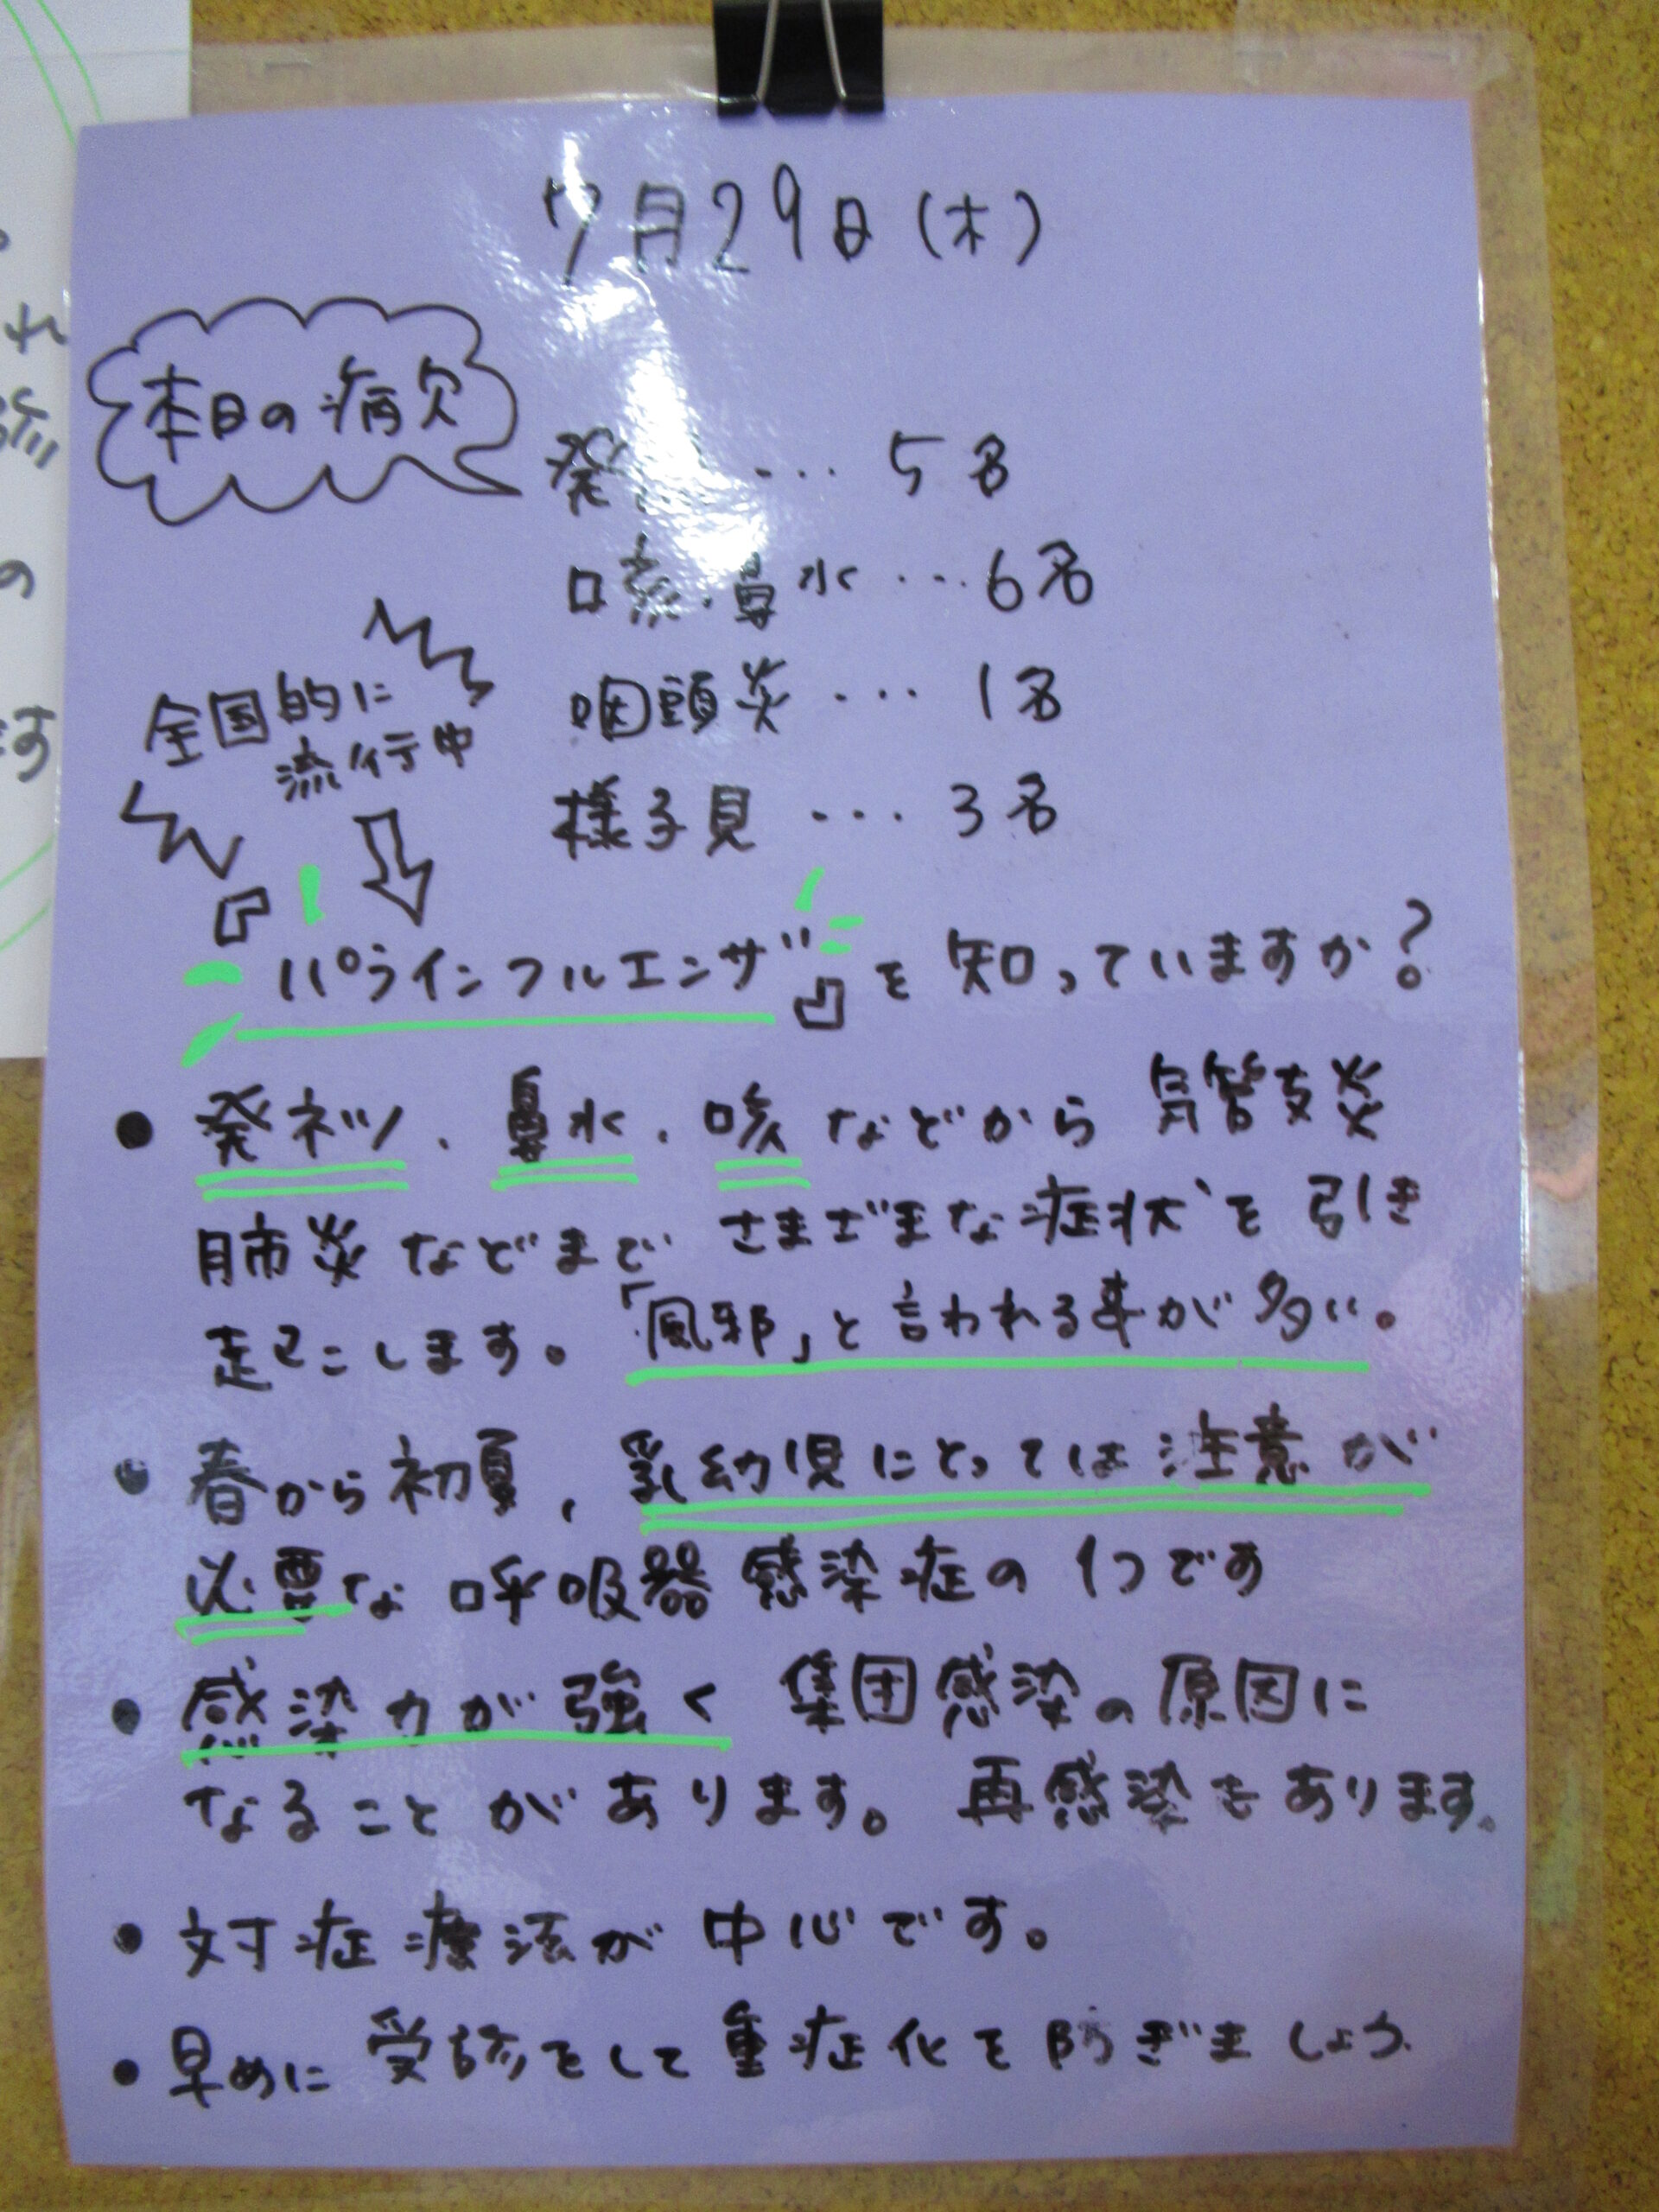 7月29日(木)
本日の病欠
発 ・・・ 5名
咳・鼻水 ・・・ 6名
咽頭炎 ・・・ 1名
様子見 ・・・ 3名
全国的に
流行中
『パラインフルエンザ』を知っていますか?
● 発ネツ、鼻水、咳などから 気管支炎
肺炎などまで さまざまな症状を引き
起こします。「風邪」と言われる事が多い。
● 春から初夏、乳幼児にとっては注意が
必要な 呼吸器感染症の1つです
● 感染力が強く 集団感染の原因に
なることがあります。再感染もあります。
● 対症療法が中心です。
● 早めに受診をして重症化を防ぎましょう.
れ
の
ます